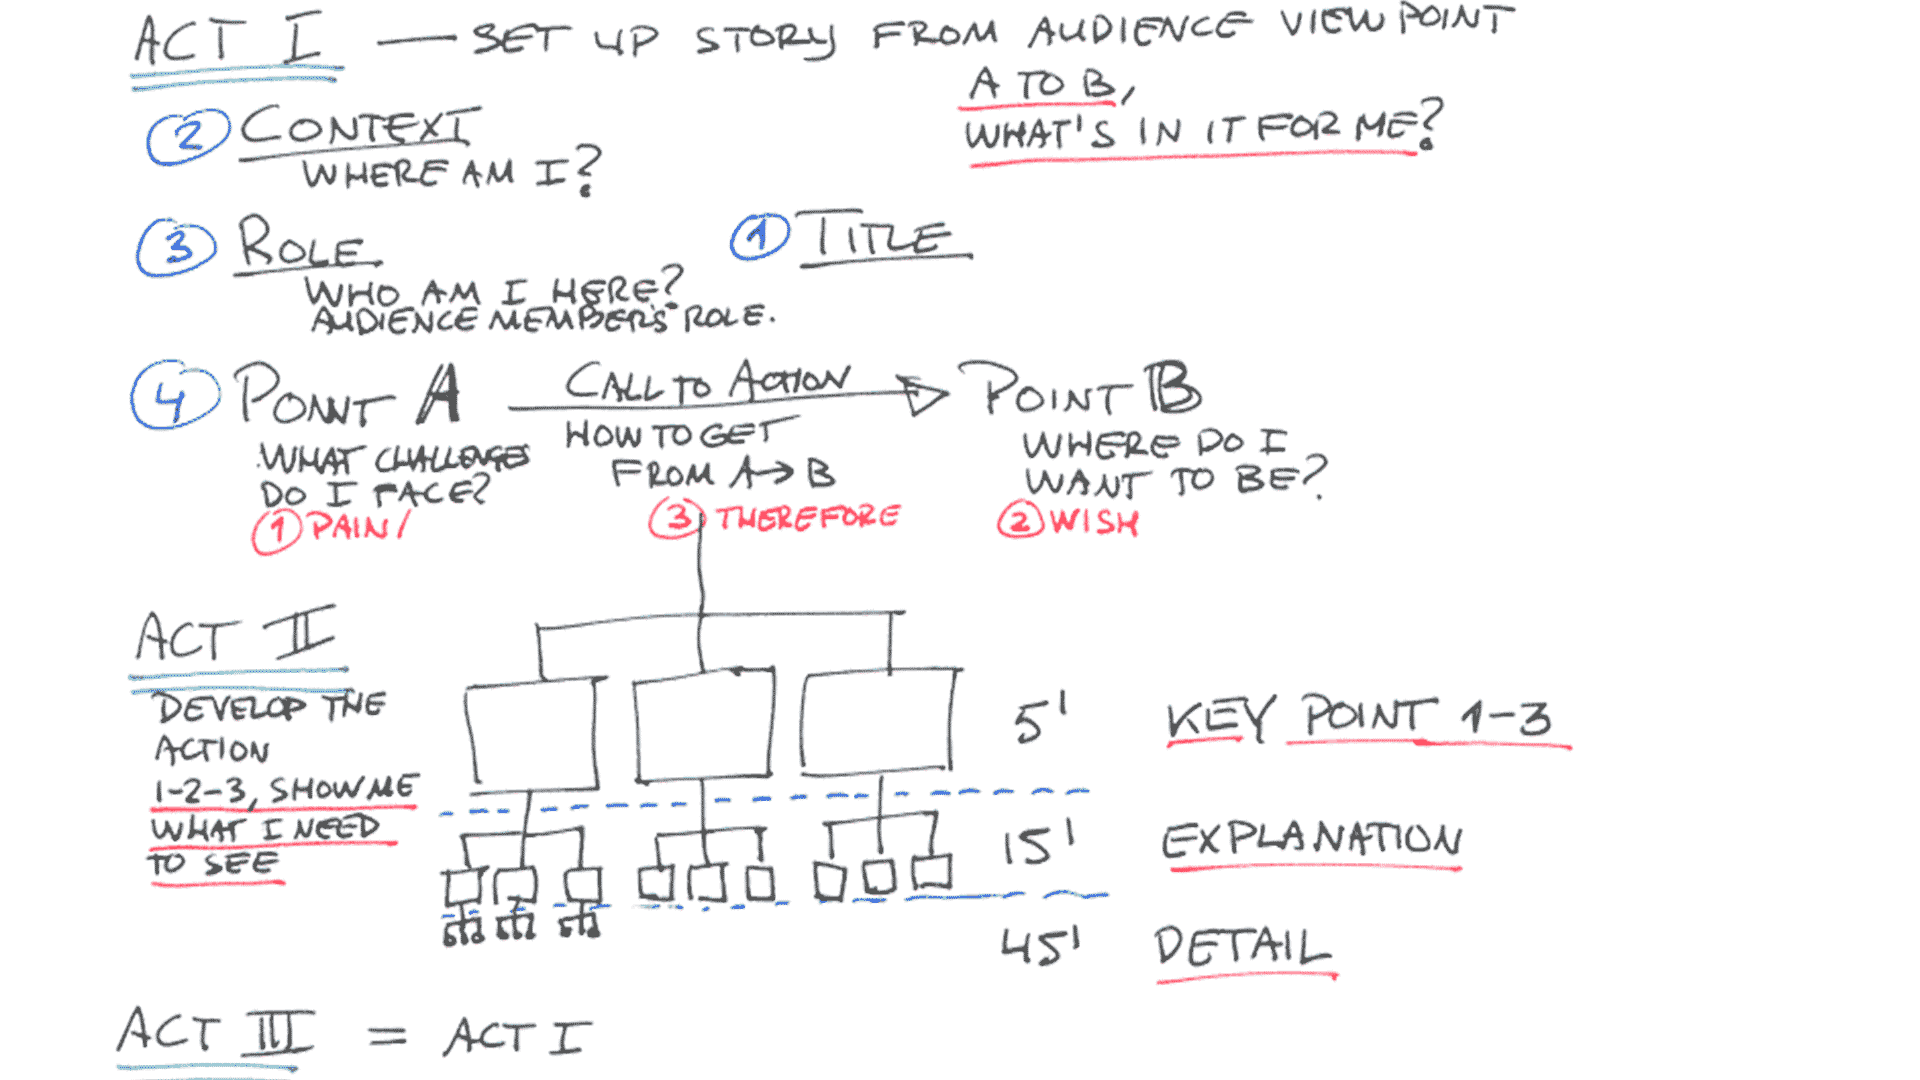 ACT I — SET UP STORY FROM AUDIENCE VIEWPOINT
A TO B,
WHAT'S IN IT FOR ME?
② CONTEXT
WHERE AM I?
③ ROLE
WHO AM I HERE?
AUDIENCE MEMBER'S ROLE.
① TITLE
④ POINT A
WHAT CHALLENGES
DO I FACE?
① PAIN/
CALL TO ACTION
HOW TO GET
FROM A→B
③ THEREFORE
POINT B
WHERE DO I
WANT TO BE?
② WISH
ACT II
DEVELOP THE
ACTION
1-2-3, SHOW ME
WHAT I NEED
TO SEE
5' KEY POINT 1-3
15' EXPLANATION
45' DETAIL
ACT III = ACT I